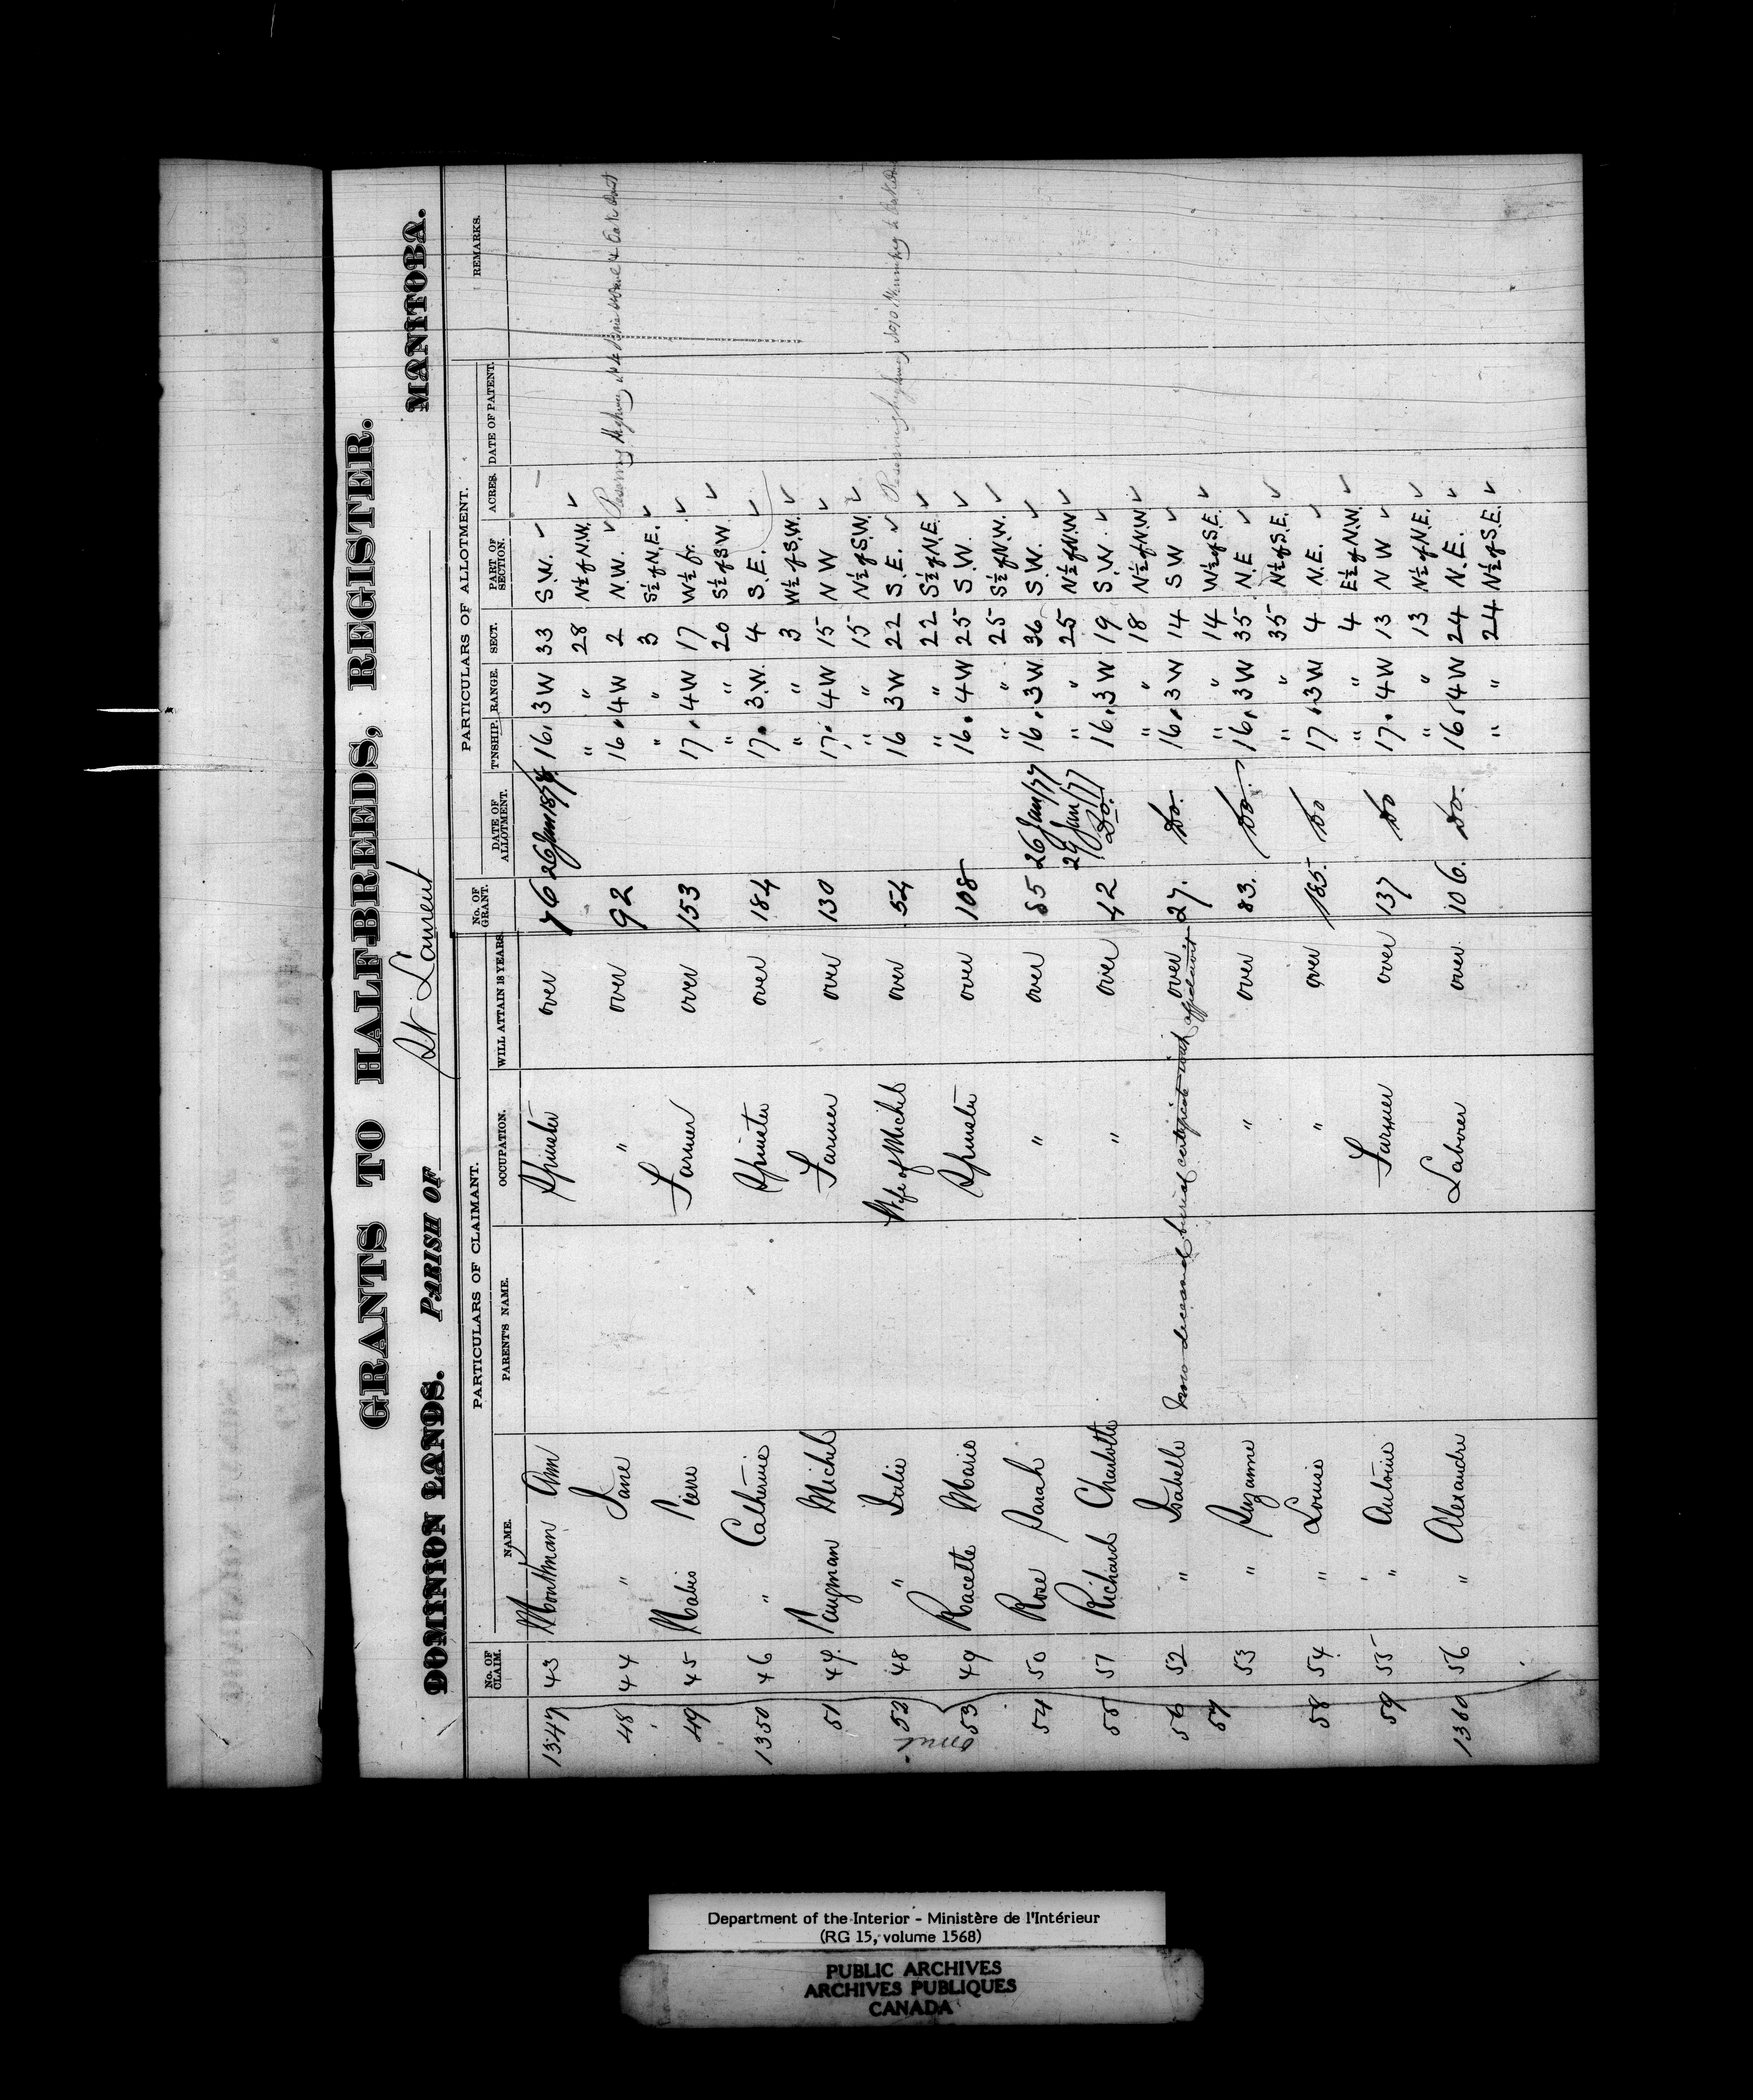 GRANTS TO HALF-BREEDS, REGISTER.
DOMINION LANDS. PARISH OF St. Laurent MANITOBA.
PARTICULARS OF CLAIMANT. PARTICULARS OF ALLOTMENT.
No. OF CLAIM. NAME. PARENT'S NAME. OCCUPATION. WILL ATTAIN 18 YEARS. No. OF GRANT. DATE OF ALLOTMENT. T'NSHIP. RANGE. SECT. PART OF SECTION. ACRES. DATE OF PATENT. REMARKS.
1347 43 Ann Spinster over 76 26 Jan 16 3 W 33 S.W.
" " 28 N½ of N.W.
48 44 " Jane " over 92 16 4W 2 N.W. Reserving Highway
" " 3 S½ of N.E.
49 45 Pierre Farmer over 153 17 4W 17 W½ fr.
" " 20 S½ of S.W.
1350 46 " Catherine Spinster over 184 17 3.W. 4 S.E.
" " 3 W½ of S.W.
51 47 Michel Farmer over 130 17 4W 15 N W
" " 15 N½ of S.W.
52 48 " Julie Wife of Michel over 54 16 3W 22 S.E. Reserving highway
" " 22 S½ of N.E.
omit
53 49 Racette Marie Spinster over 108 16 4W 25 S.W.
" " 25 S½ of N.W.
54 50 Rose Sarah " over 85 26 Jan/77 16 3W 36 S.W.
" " 25 N½ of N.W
55 51 Richard Charlotte " over 42 29 Jan/77 Do. 16 3W 19 S.W.
" " 18 N½ of N.W.
56 52 " Isabelle now deceased burial certificate with affidavit over 27. Do. 16 3W 14 S W
" " 14 W½ of S.E.
57 53 " Suzanne " over 83. Do. 16 3W 35 N.E
" " 35 N½ of S.E.
58 54 " Louise " over 185. Do 17 3W 4 N.E.
" " 4 E½ of N.W.
59 55 " Antoine Farmer over 137 Do 17 4W 13 N W
" " 13 N½ of N.E.
1360 56 " Alexandre Laborer over 106. Do. 16 4W 24 N.E.
" " 24 N½ of S.E.
Department of the Interior - Ministère de l'Intérieur
(RG 15, volume 1568)
PUBLIC ARCHIVES
ARCHIVES PUBLIQUES
CANADA